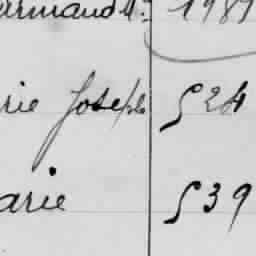 armand M. 1989
rie Joseph 524
arie 539